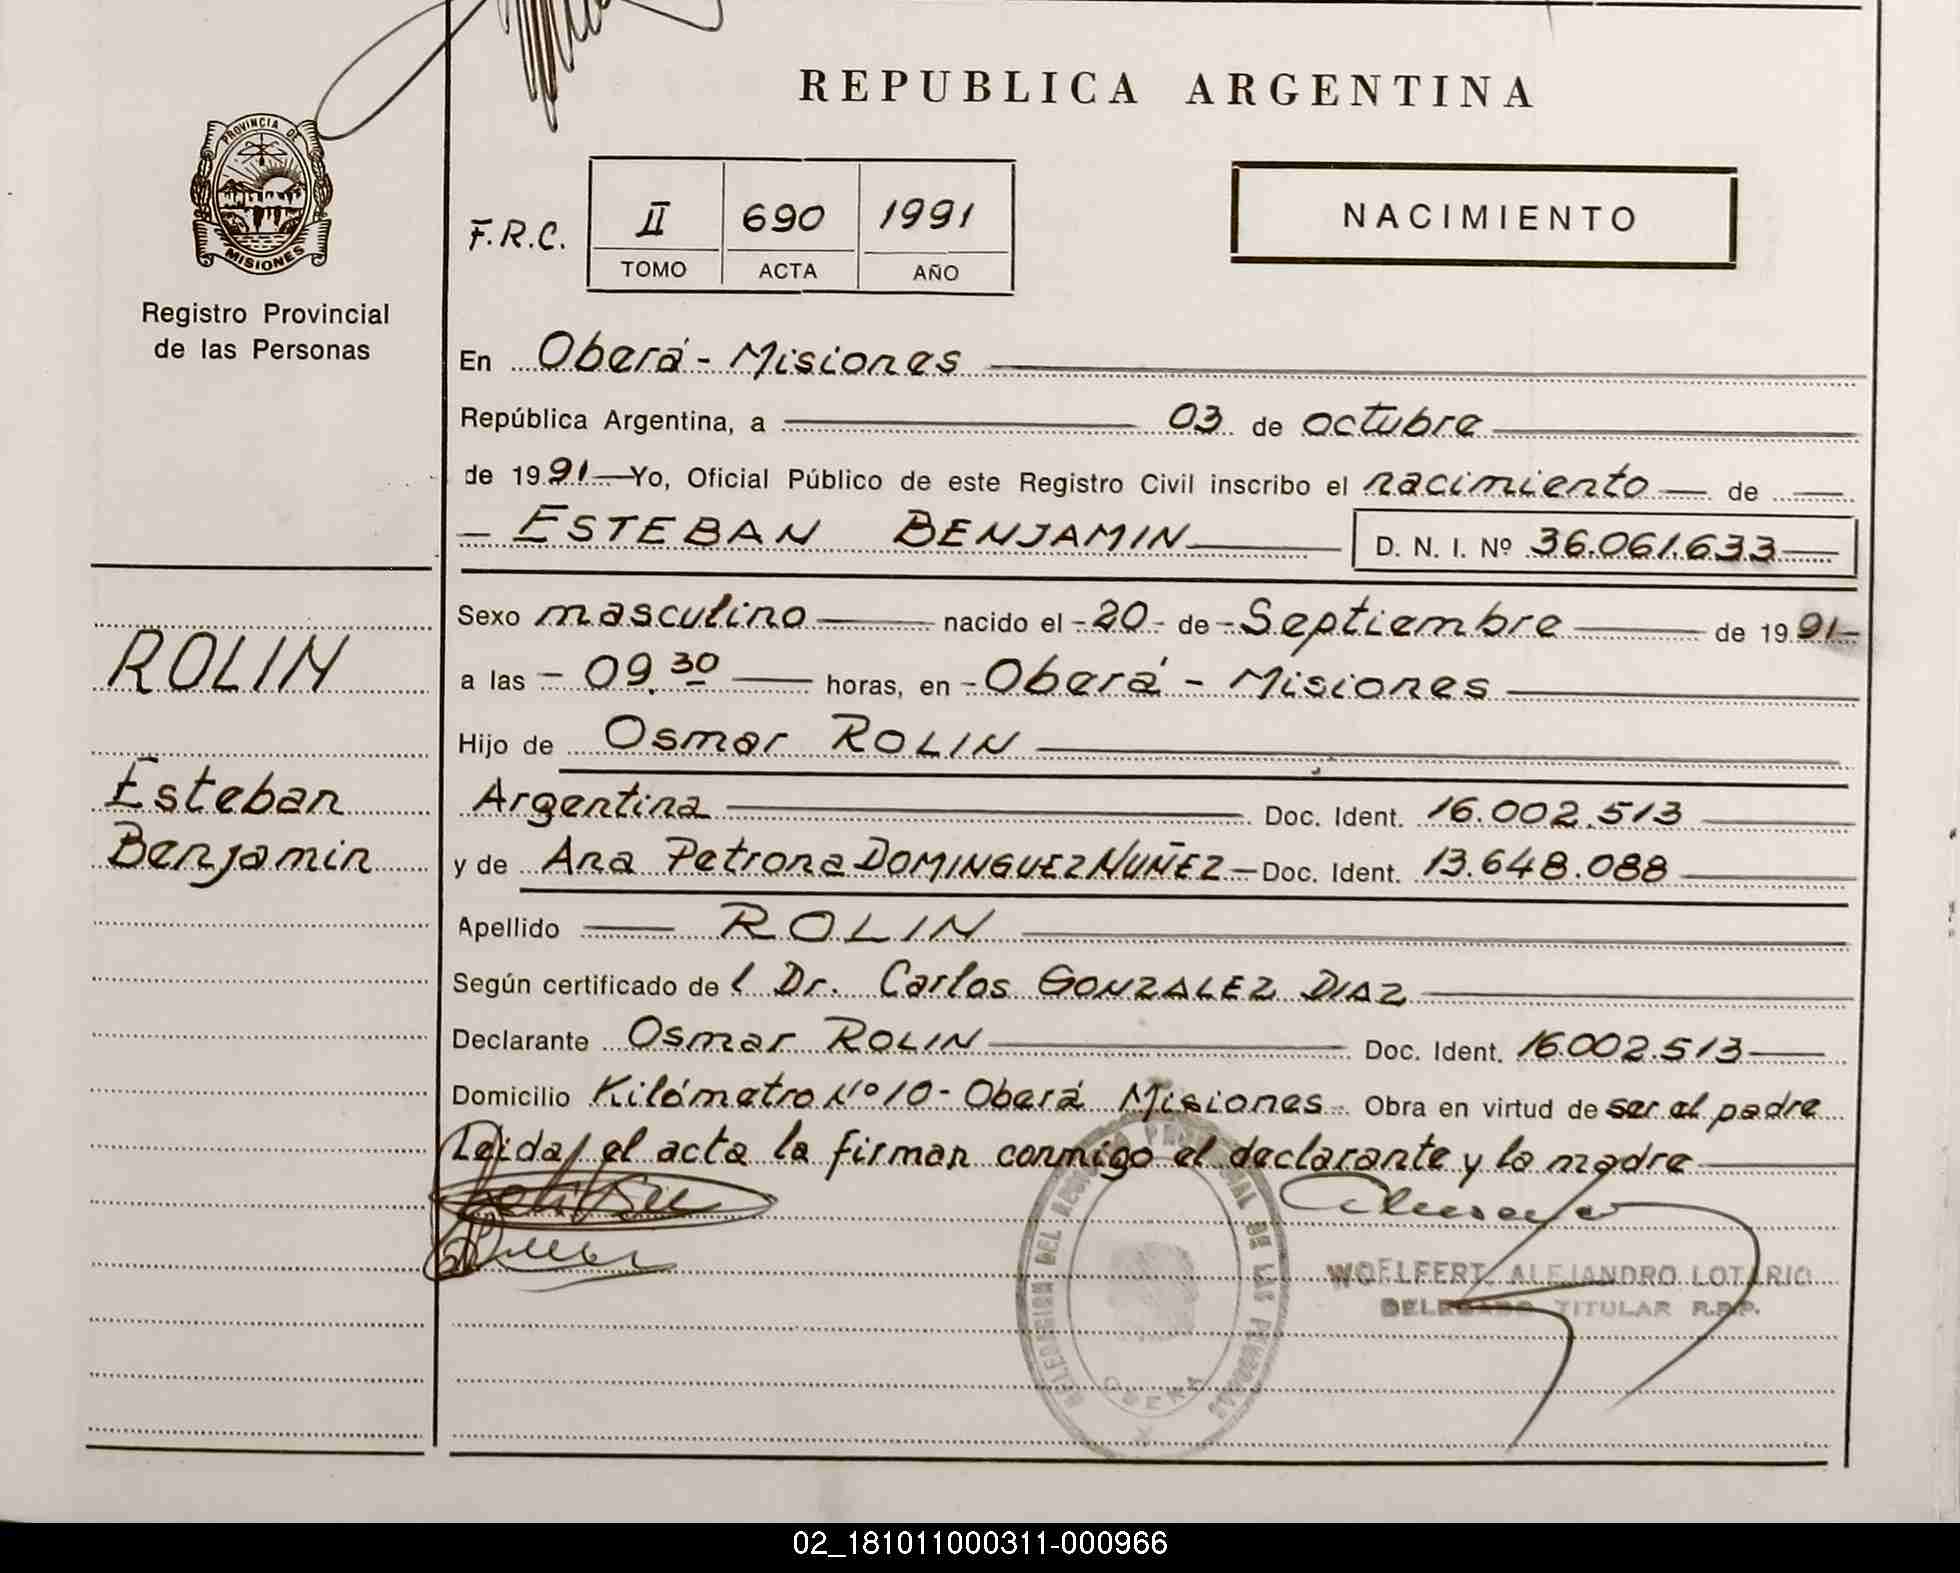 REPUBLICA ARGENTINA
PROVINCIA DE
MISIONES
Registro Provincial
de las Personas
F.R.C.
II 690 1991
TOMO ACTA AÑO
NACIMIENTO
En Oberá - Misiones
República Argentina, a 03 de octubre
de 1991 Yo, Oficial Público de este Registro Civil inscribo el nacimiento de
ESTEBAN BENJAMIN D. N. I. Nº 36.061.633
Sexo masculino nacido el 20 de Septiembre de 1991
a las 09.30 horas, en Oberá - Misiones
Hijo de Osmar ROLIN
Argentina Doc. Ident. 16.002.513
y de Ana Petrona DOMINGUEZ NUÑEZ Doc. Ident. 13.648.088
Apellido ROLIN
Según certificado del Dr. Carlos GONZALEZ DIAZ
Declarante Osmar ROLIN Doc. Ident. 16.002.513
Domicilio Kilómetro Nº 10 - Oberá Misiones Obra en virtud de ser el padre
Leida el acta la firman conmigo el declarante y la madre
ROLIN
Esteban
Benjamin
DELEGACION DEL REGISTRO PROVINCIAL DE LAS PERSONAS
OBERA
WOELFERT, ALEJANDRO LOTARIO
DELEGADO TITULAR R.P.P.
02_181011000311-000966